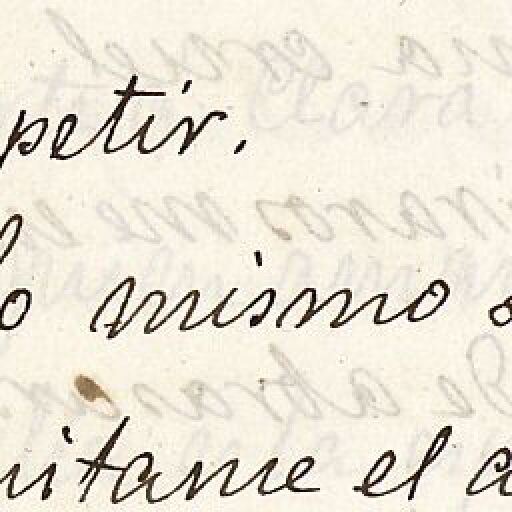 petir.
lo mismo s
uitame el a